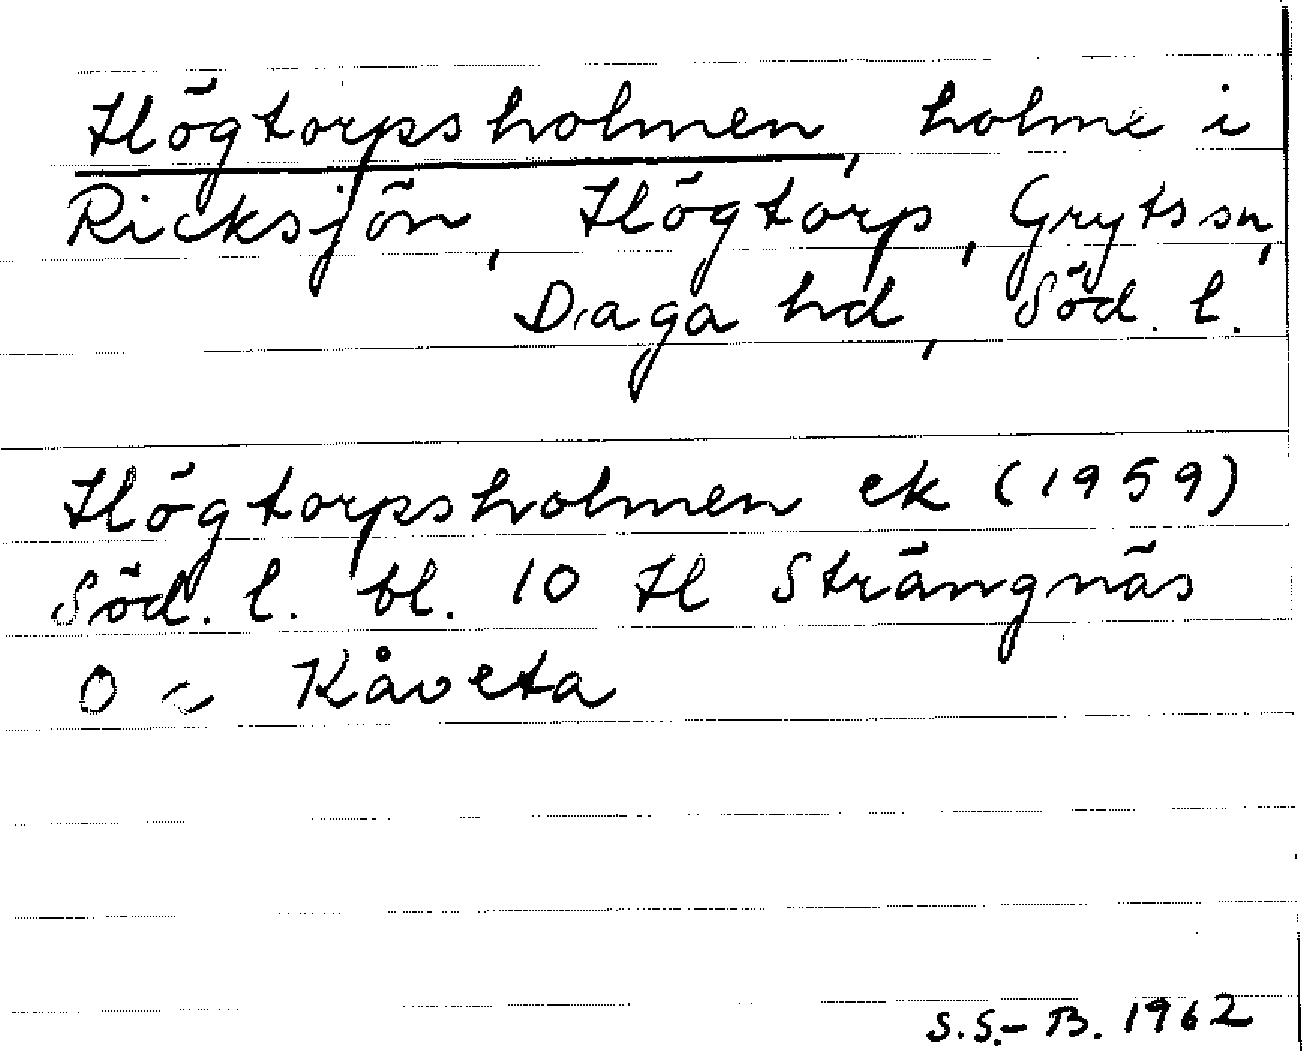 Högtorpsholmen, holme i
Ricksjön, Högtorp, Gryts sn,
Daga hd, Söd. l.
Högtorpsholmen ek (1959)
Söd. l. bl. 10 H Strängnäs
O Kåveta
S.S.-B. 1962